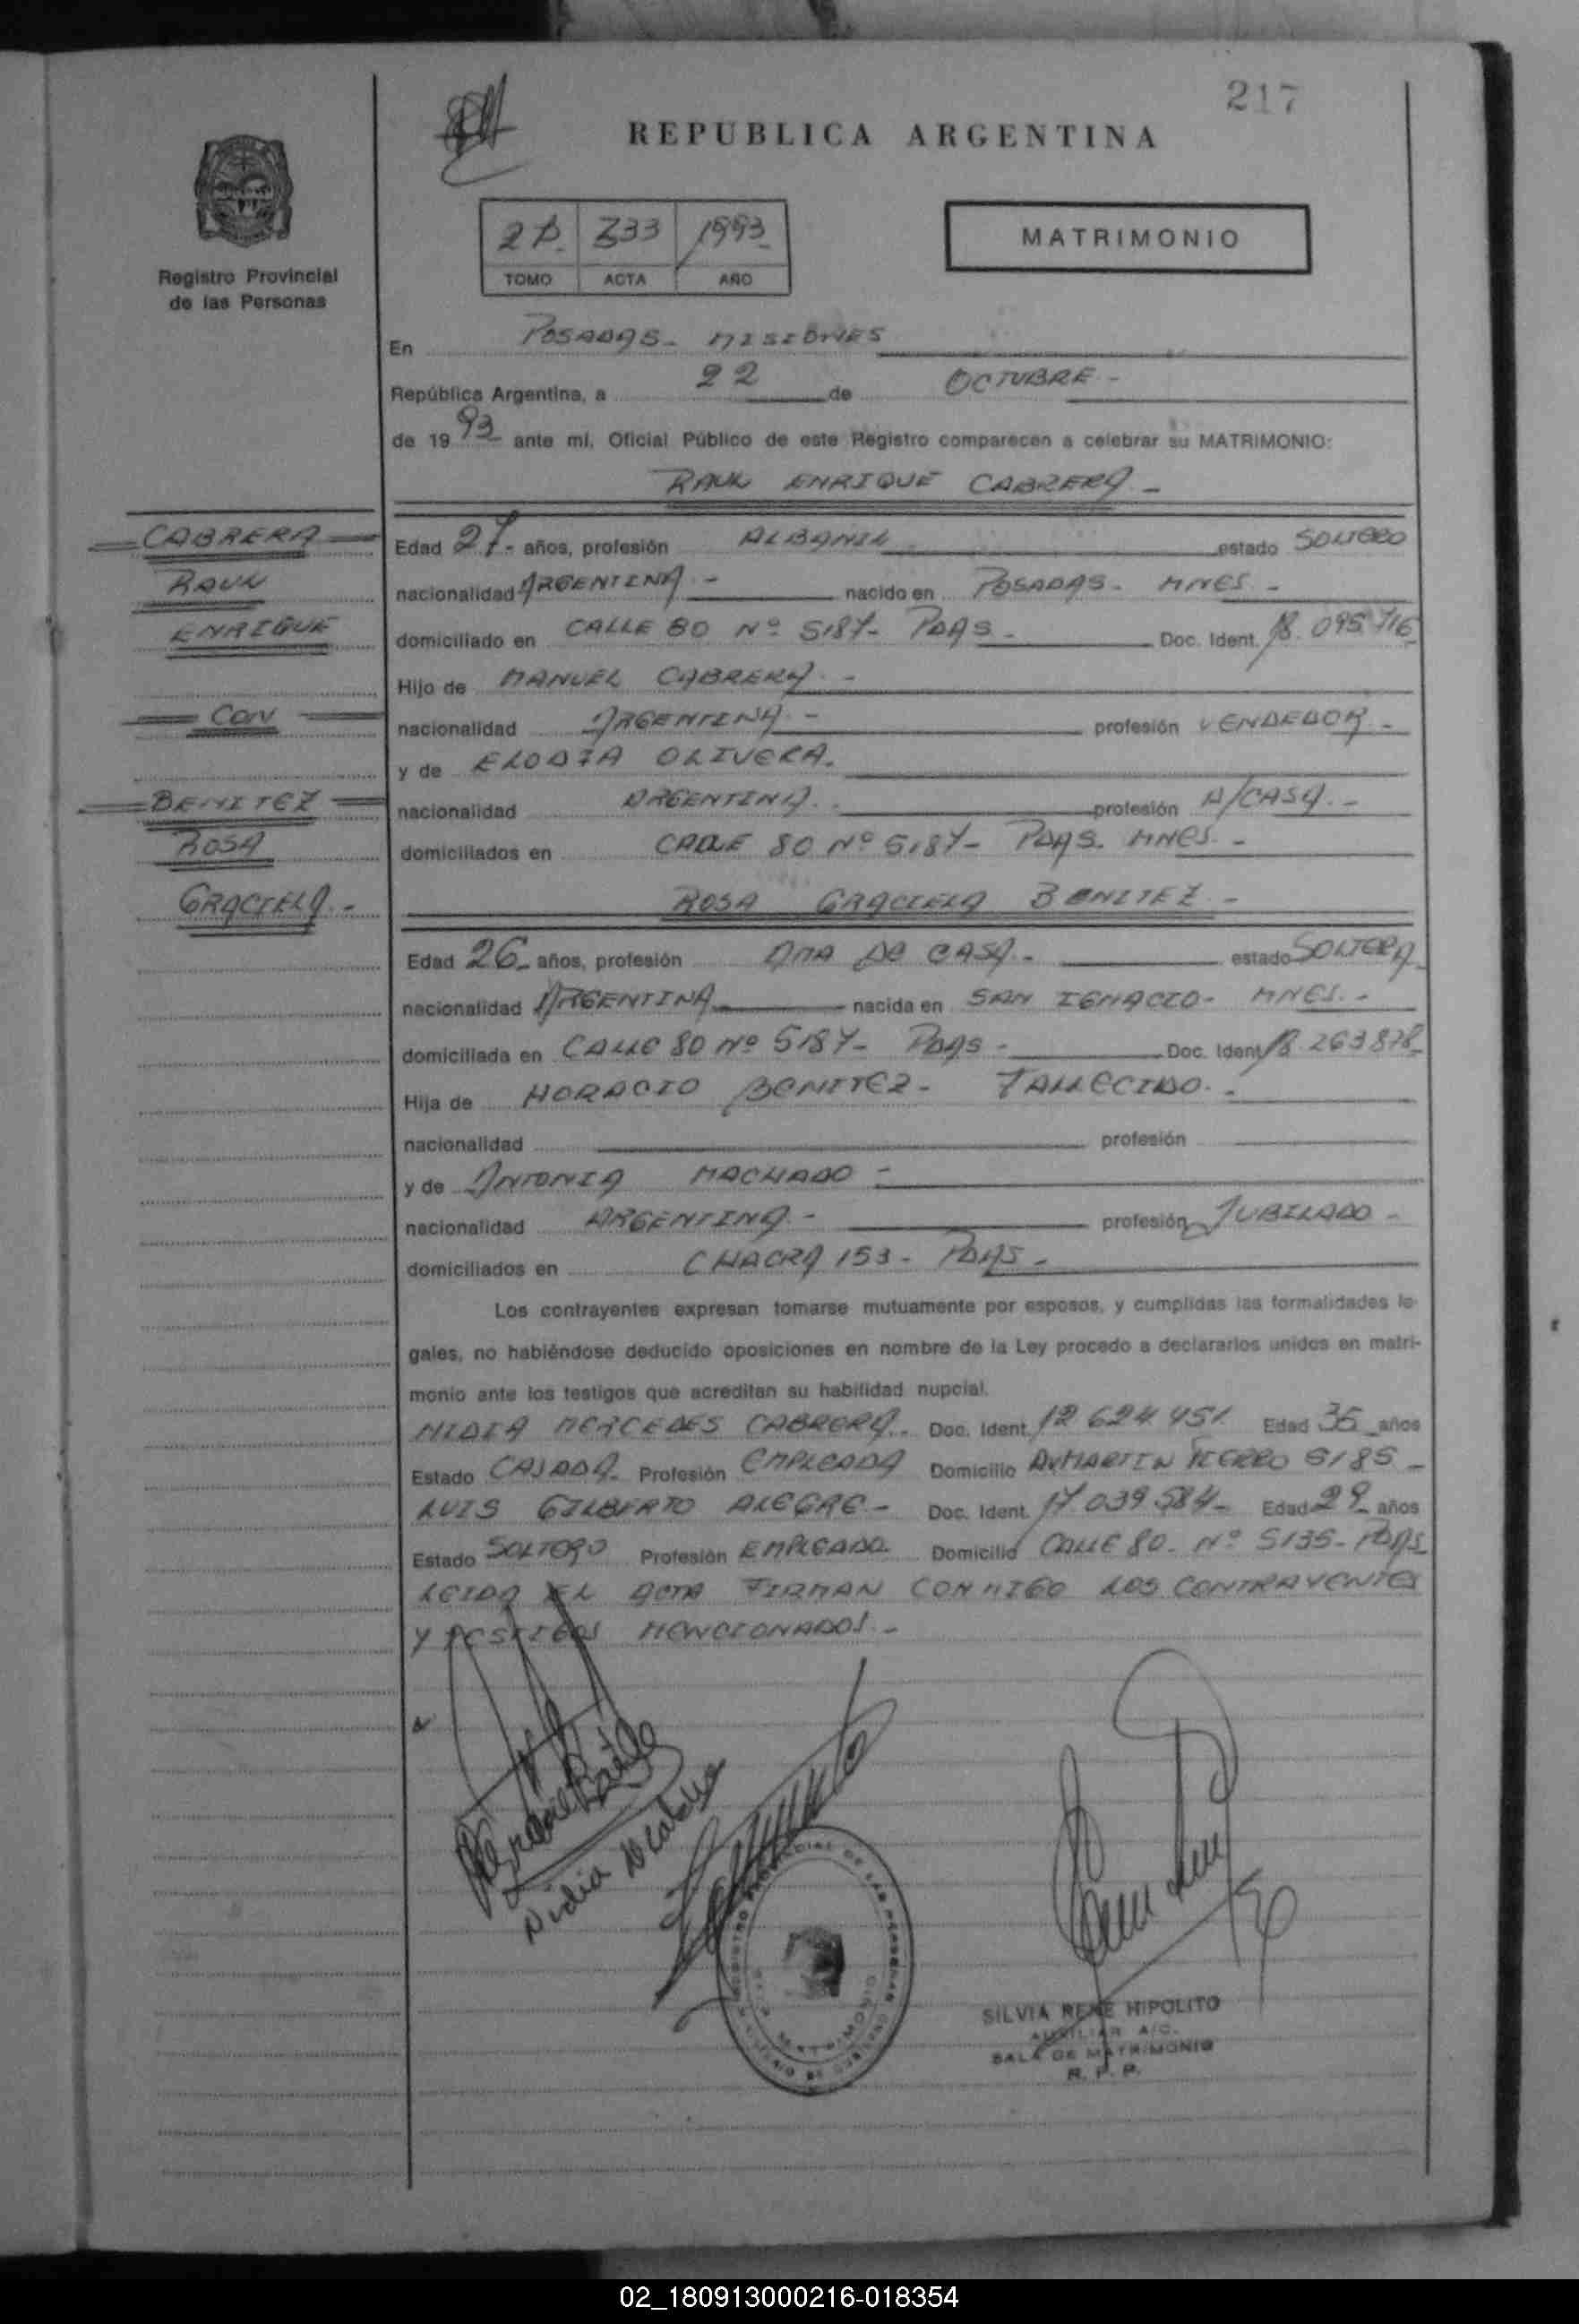 217
REPUBLICA ARGENTINA
Registro Provincial
de las Personas
2 P. 333 1993
TOMO ACTA AÑO
MATRIMONIO
En POSADAS - MISIONES
República Argentina, a 22 de OCTUBRE -
de 19 93 ante mí, Oficial Público de este Registro comparecen a celebrar su MATRIMONIO:
RAUL ENRIQUE CABRERA -
CABRERA
RAUL
ENRIQUE
CON
BENITEZ
ROSA
GRACIELA -
Edad 27 - años, profesión ALBANIL estado SOLTERO
nacionalidad ARGENTINA - nacido en POSADAS - MNES -
domiciliado en CALLE 80 Nº 5187 - PDAS - Doc. Ident. 18.095.716
Hijo de MANUEL CABRERA -
nacionalidad ARGENTINA - profesión VENDEDOR -
y de ELODIA OLIVERA.
nacionalidad ARGENTINA. profesión A/CASA. -
domiciliados en CALLE 80 Nº 5187 - PDAS. MNES. -
ROSA GRACIELA BENITEZ -
Edad 26 - años, profesión AMA DE CASA - estado SOLTERA
nacionalidad ARGENTINA nacida en SAN IGNACIO - MNES. -
domiciliada en CALLE 80 Nº 5187 - PDAS - Doc. Ident. 18.263.878
Hija de HORACIO BENITEZ - FALLECIDO. -
nacionalidad profesión
y de ANTONIA MACHADO -
nacionalidad ARGENTINA - profesión JUBILADO -
domiciliados en CHACRA 153 - PDAS -
Los contrayentes expresan tomarse mutuamente por esposos, y cumplidas las formalidades le-
gales, no habiéndose deducido oposiciones en nombre de la Ley procedo a declararlos unidos en matri-
monio ante los testigos que acreditan su habilidad nupcial.
NIDIA MERCEDES CABRERA. Doc. Ident. 12.624.451 Edad 35 años
Estado CASADA. Profesión EMPLEADA Domicilio AV MARTIN FIERRO 5185 -
LUIS GILBERTO ALEGRE - Doc. Ident. 17.039.584 - Edad 29 años
Estado SOLTERO Profesión EMPLEADO Domicilio CALLE 80 - Nº 5135 - PDAS
LEIDA EL ACTA FIRMAN CONMIGO LOS CONTRAYENTES
Y TESTIGOS MENCIONADOS. -
Nidia
REGISTRO PROVINCIAL DE LAS PERSONAS
MATRIMONIO
SILVIA RENE HIPOLITO
AUXILIAR A/C.
SALA DE MATRIMONIO
R. P. P.
02_180913000216-018354